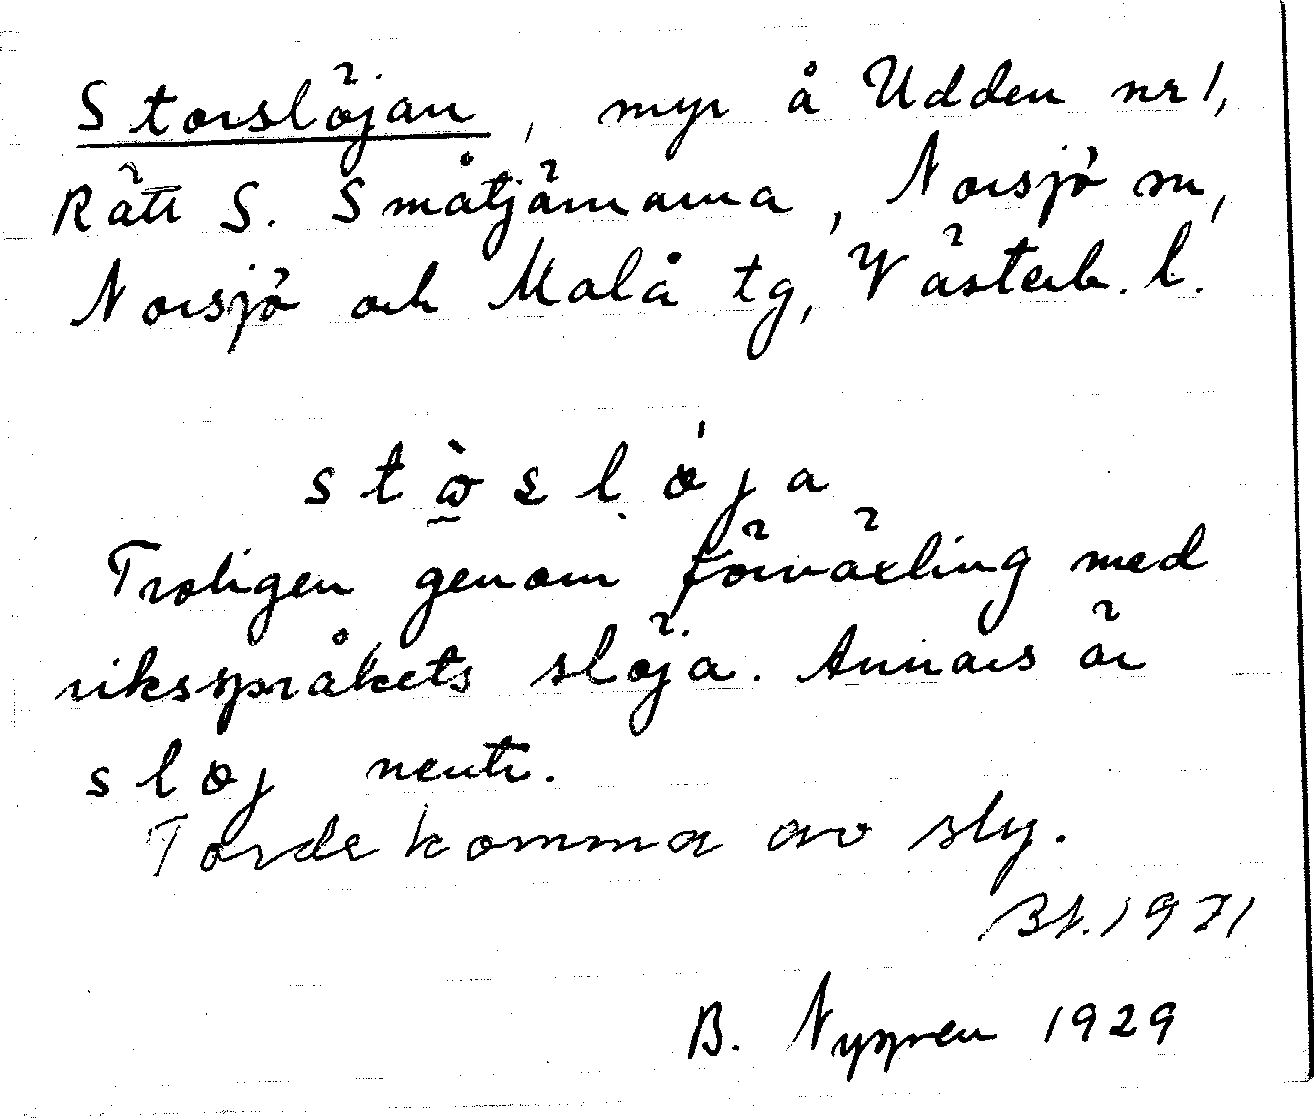 Storslöjan, myr å Udden nr 1,
Rätt S. Småtjärnarna, Norsjö sn,
Norsjö och Malå tg, Västerb. l.
Troligen genom förväxling med
riksspråkets slöja. Annars är
sløj neutr.
Torde komma av sly.
1971
B. Nygren 1929